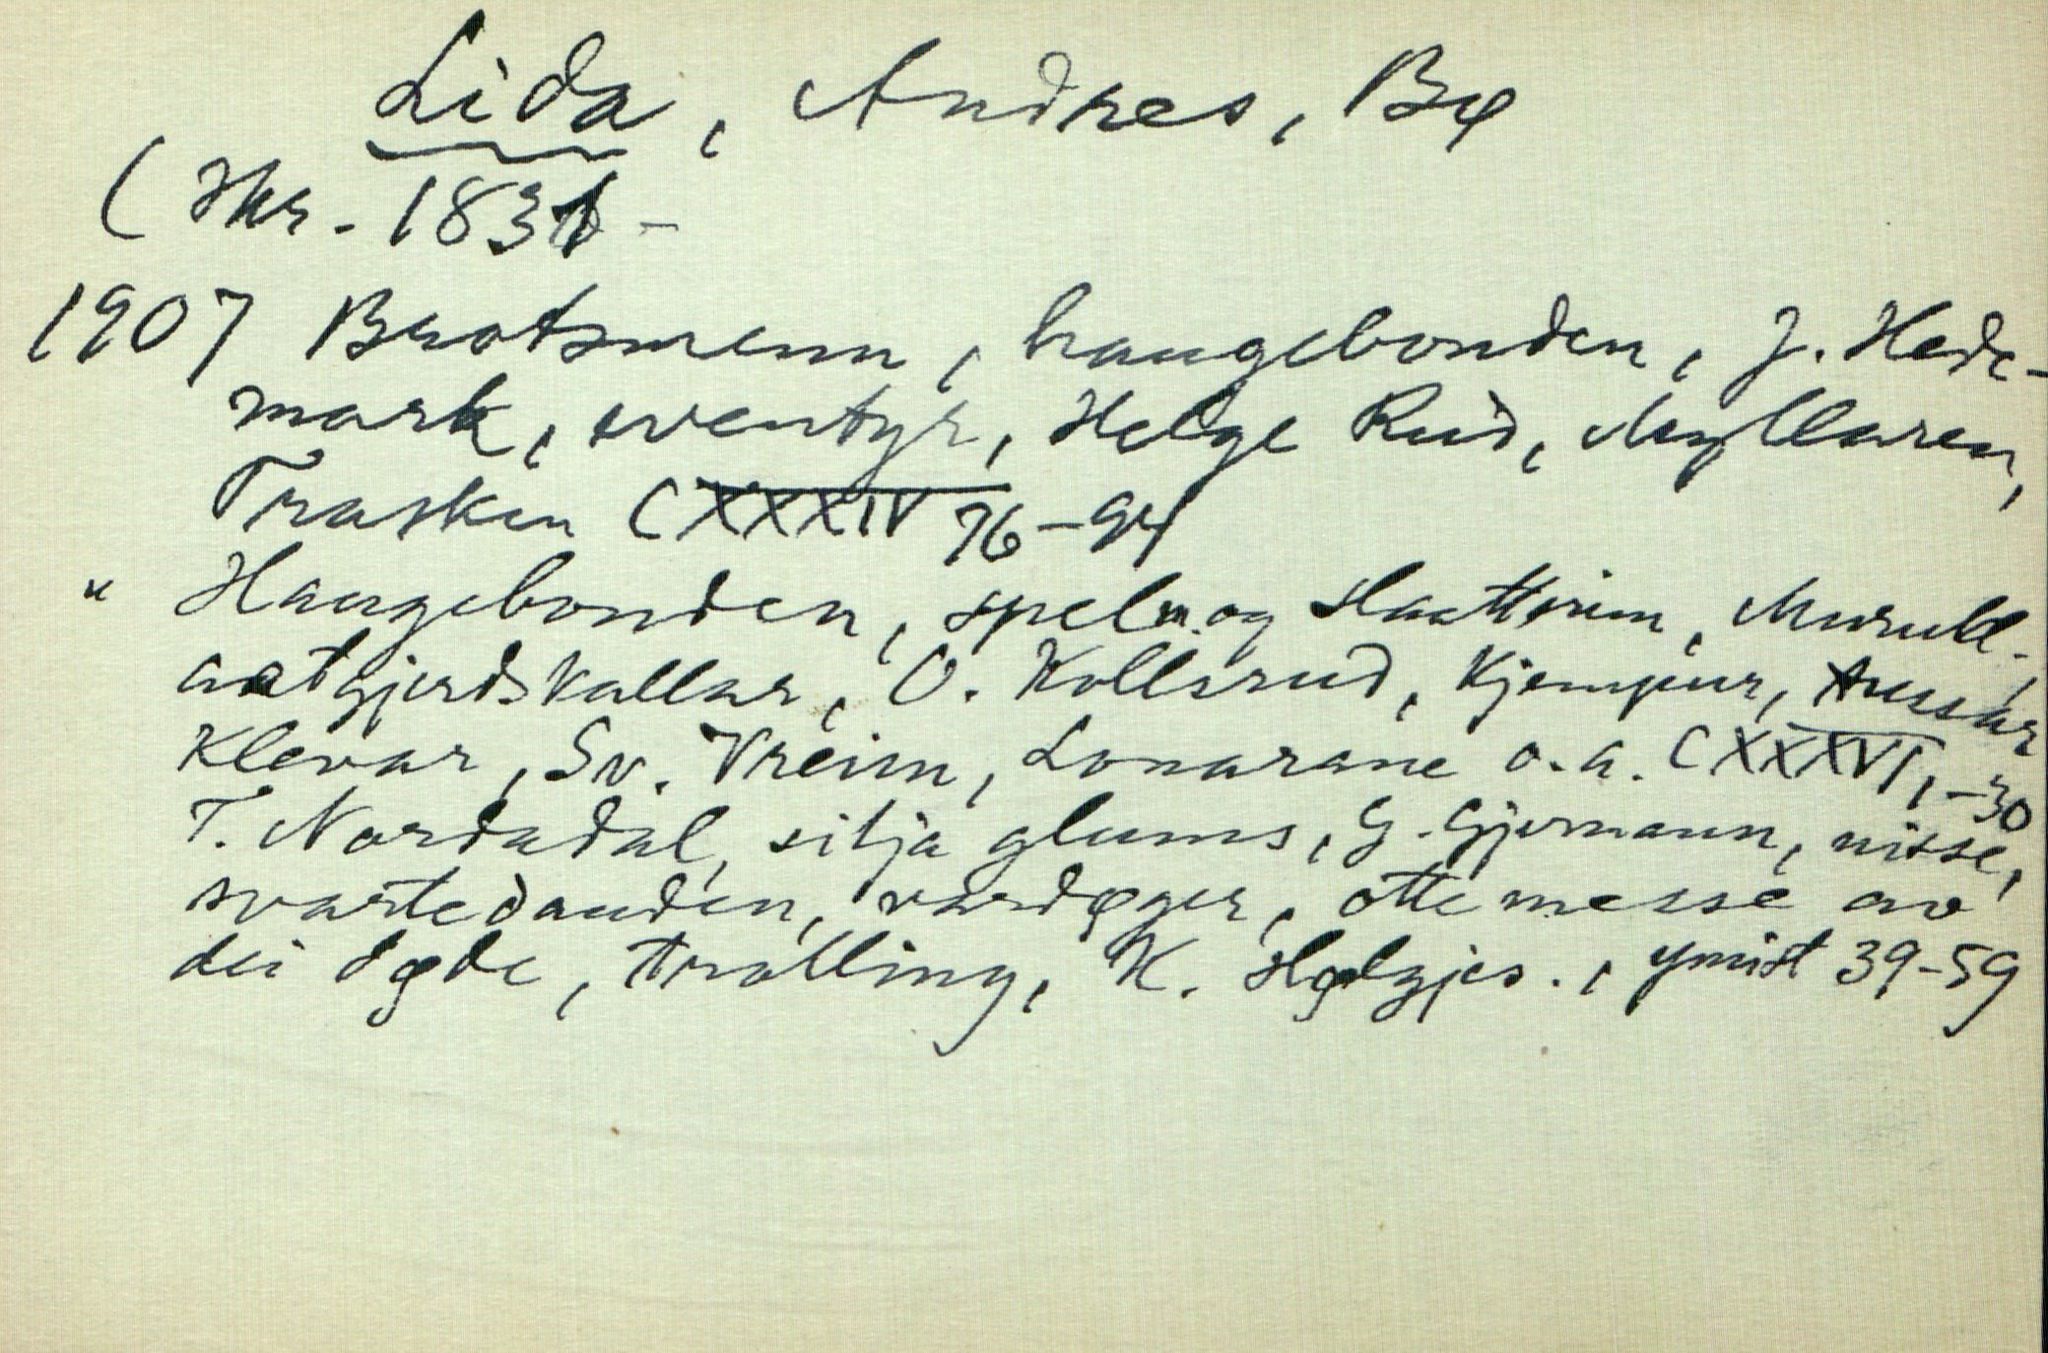 Lida, Andres, Bø
(Skr. 1831 -
1907 Brotsmenn, haugebonden, J. Hede-
mark, eventyr, Helge Ruid, Myllaren,
Trasken CXXXIV 76-94
" Haugebonden, spelm. og slaatterim,
aatgjerdskallar, O. Kollsrud, Kjempur,
Klevar, Sv. Vreim, Lonarane o.a. CXXXVI, -30
T. Nordadal, silja glums, G. Gjermann, nisse,
svartedauden, vardøger, ottemesse av
dei døde, trolling, K. Helgjes., ymist 39-59